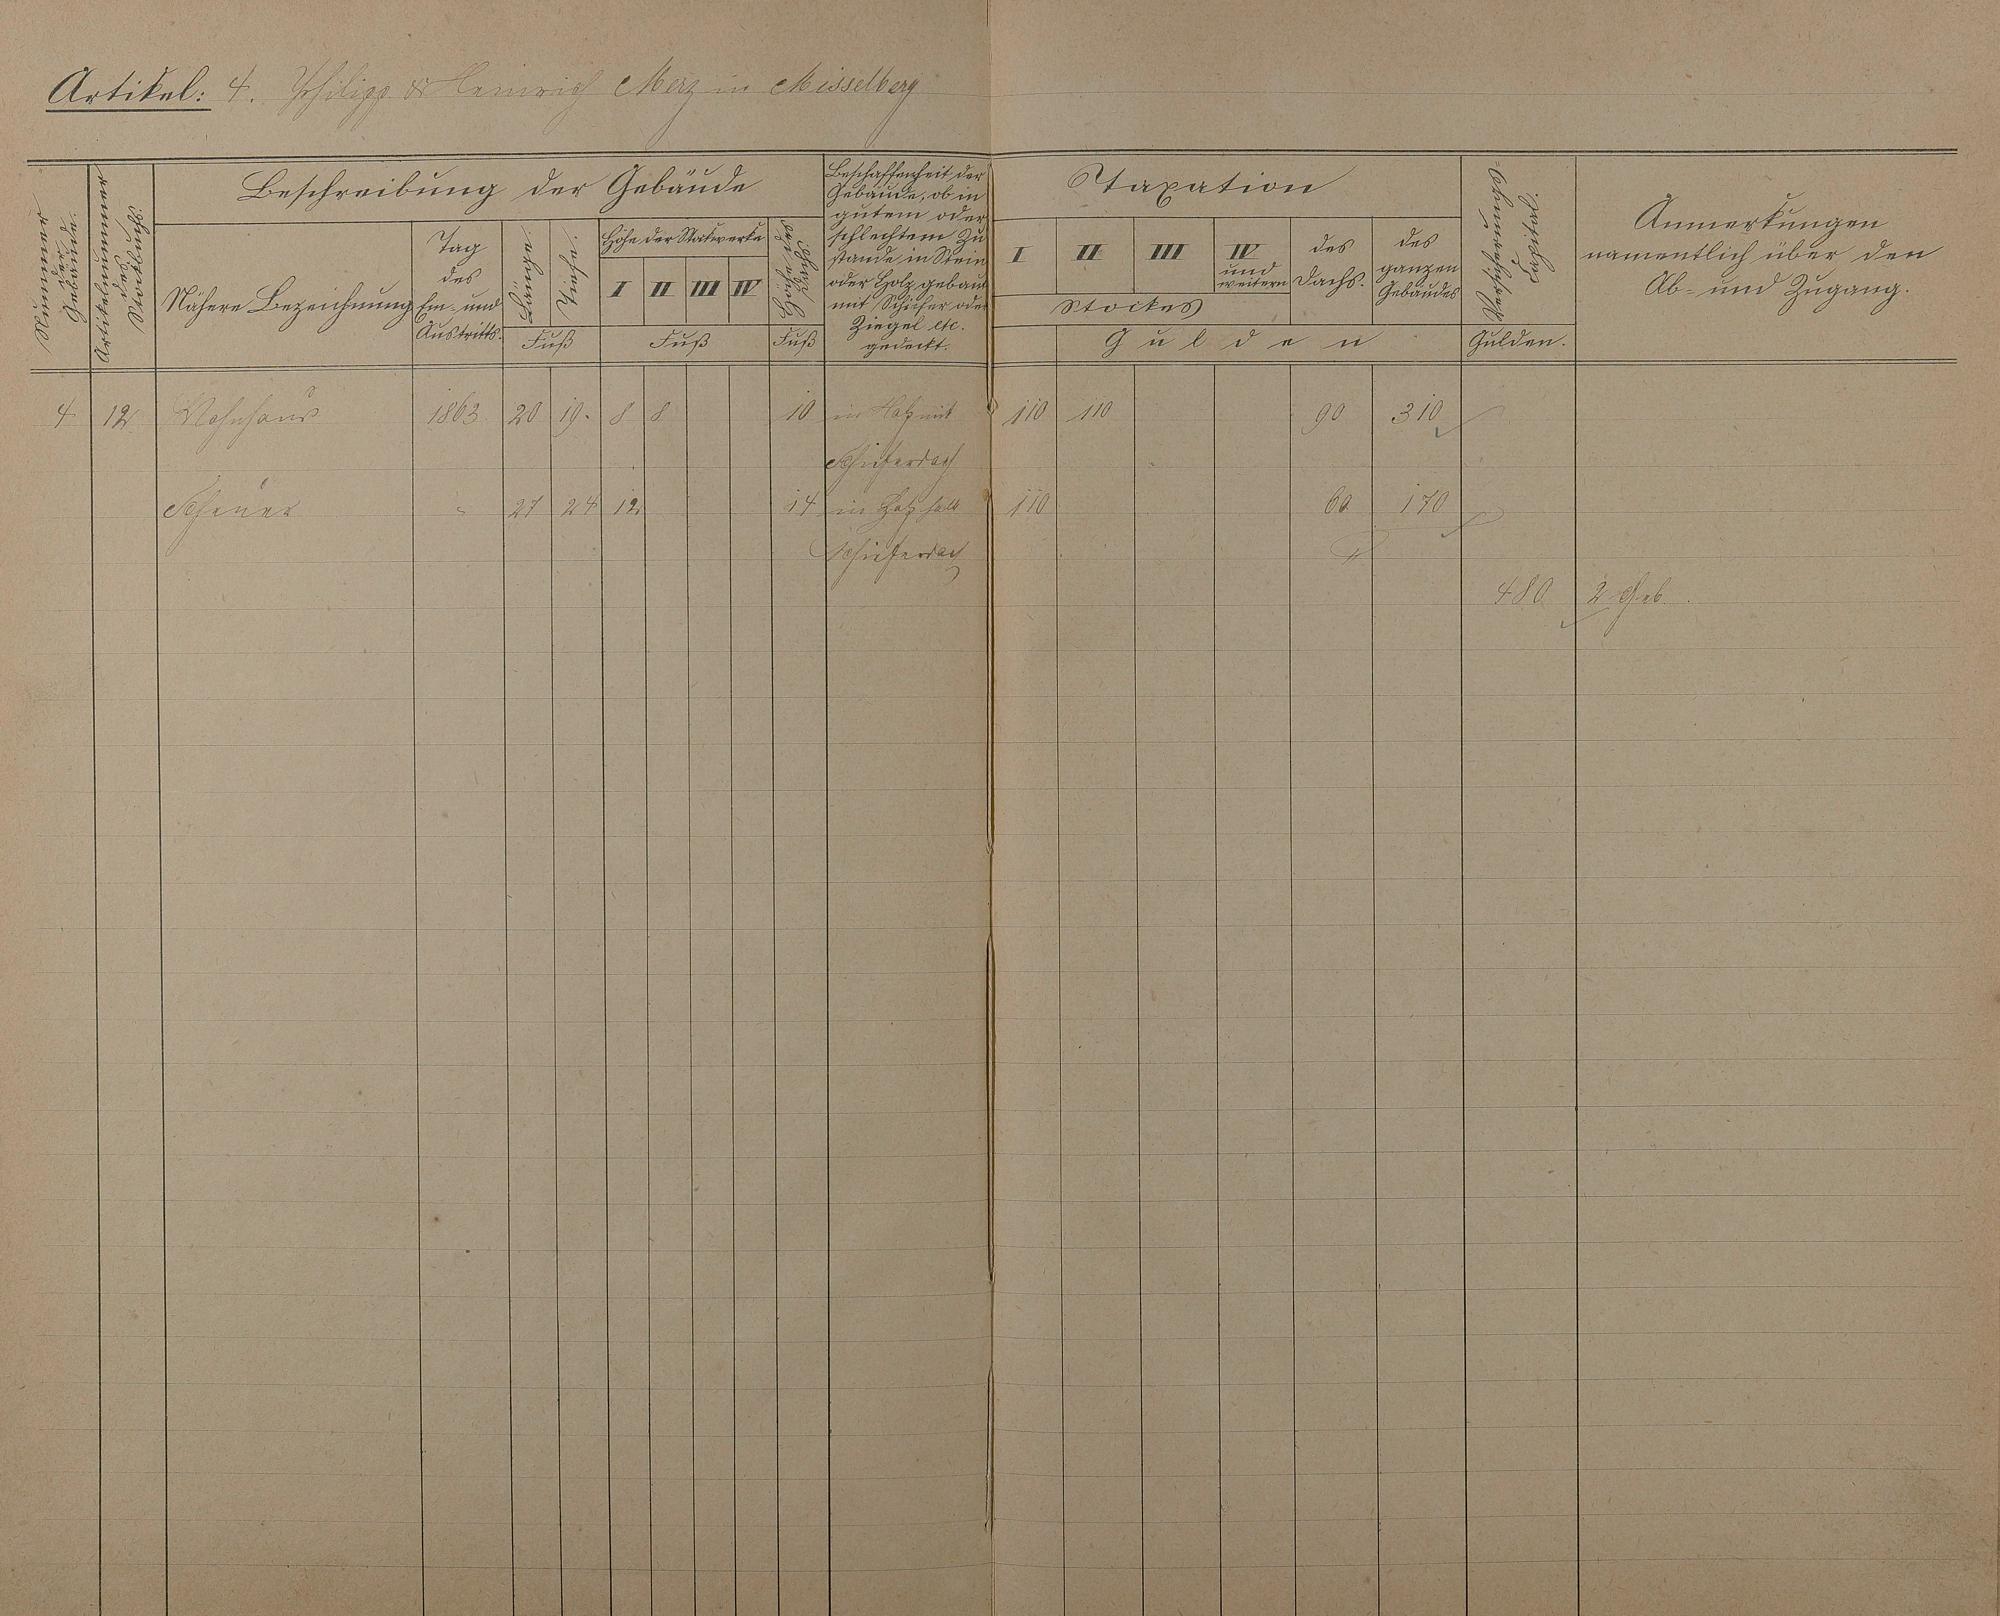 Artikel: 4. Philipp & Heinrich Merz in Misselberg
Nummer der Gebäude.
Artikelnummer des Stockbuchs.
Beschreibung der Gebäude
Nähere Bezeichnung
Tag des Ein- und Austritts.
Länge.
Tiefe.
Fuß
Höhe der Stockwerke
I II III IV
Fuß
Höhe des Dachs.
Fuß
Beschaffenheit der
Gebäude, ob in
gutem oder
schlechtem Zu
stande in Stein
oder Holz gebaut
mit Schiefer oder
Ziegel etc.
gedeckt.
Taxation
I II III IV und weitern
Stockes
des Dachs.
des ganzen Gebäudes
Gulden
Versicherungs-Capital.
Gulden.
Anmerkungen
namentlich über den
Ab- und Zugang.
4 12 Wohnhaus 1863 20 19 8 8 10 in Holz mit 110 110 90 310
Schieferdach
Scheuer " 27 24 12 14 in Holz 110 60 170
Schieferdach
480 2 Geb.